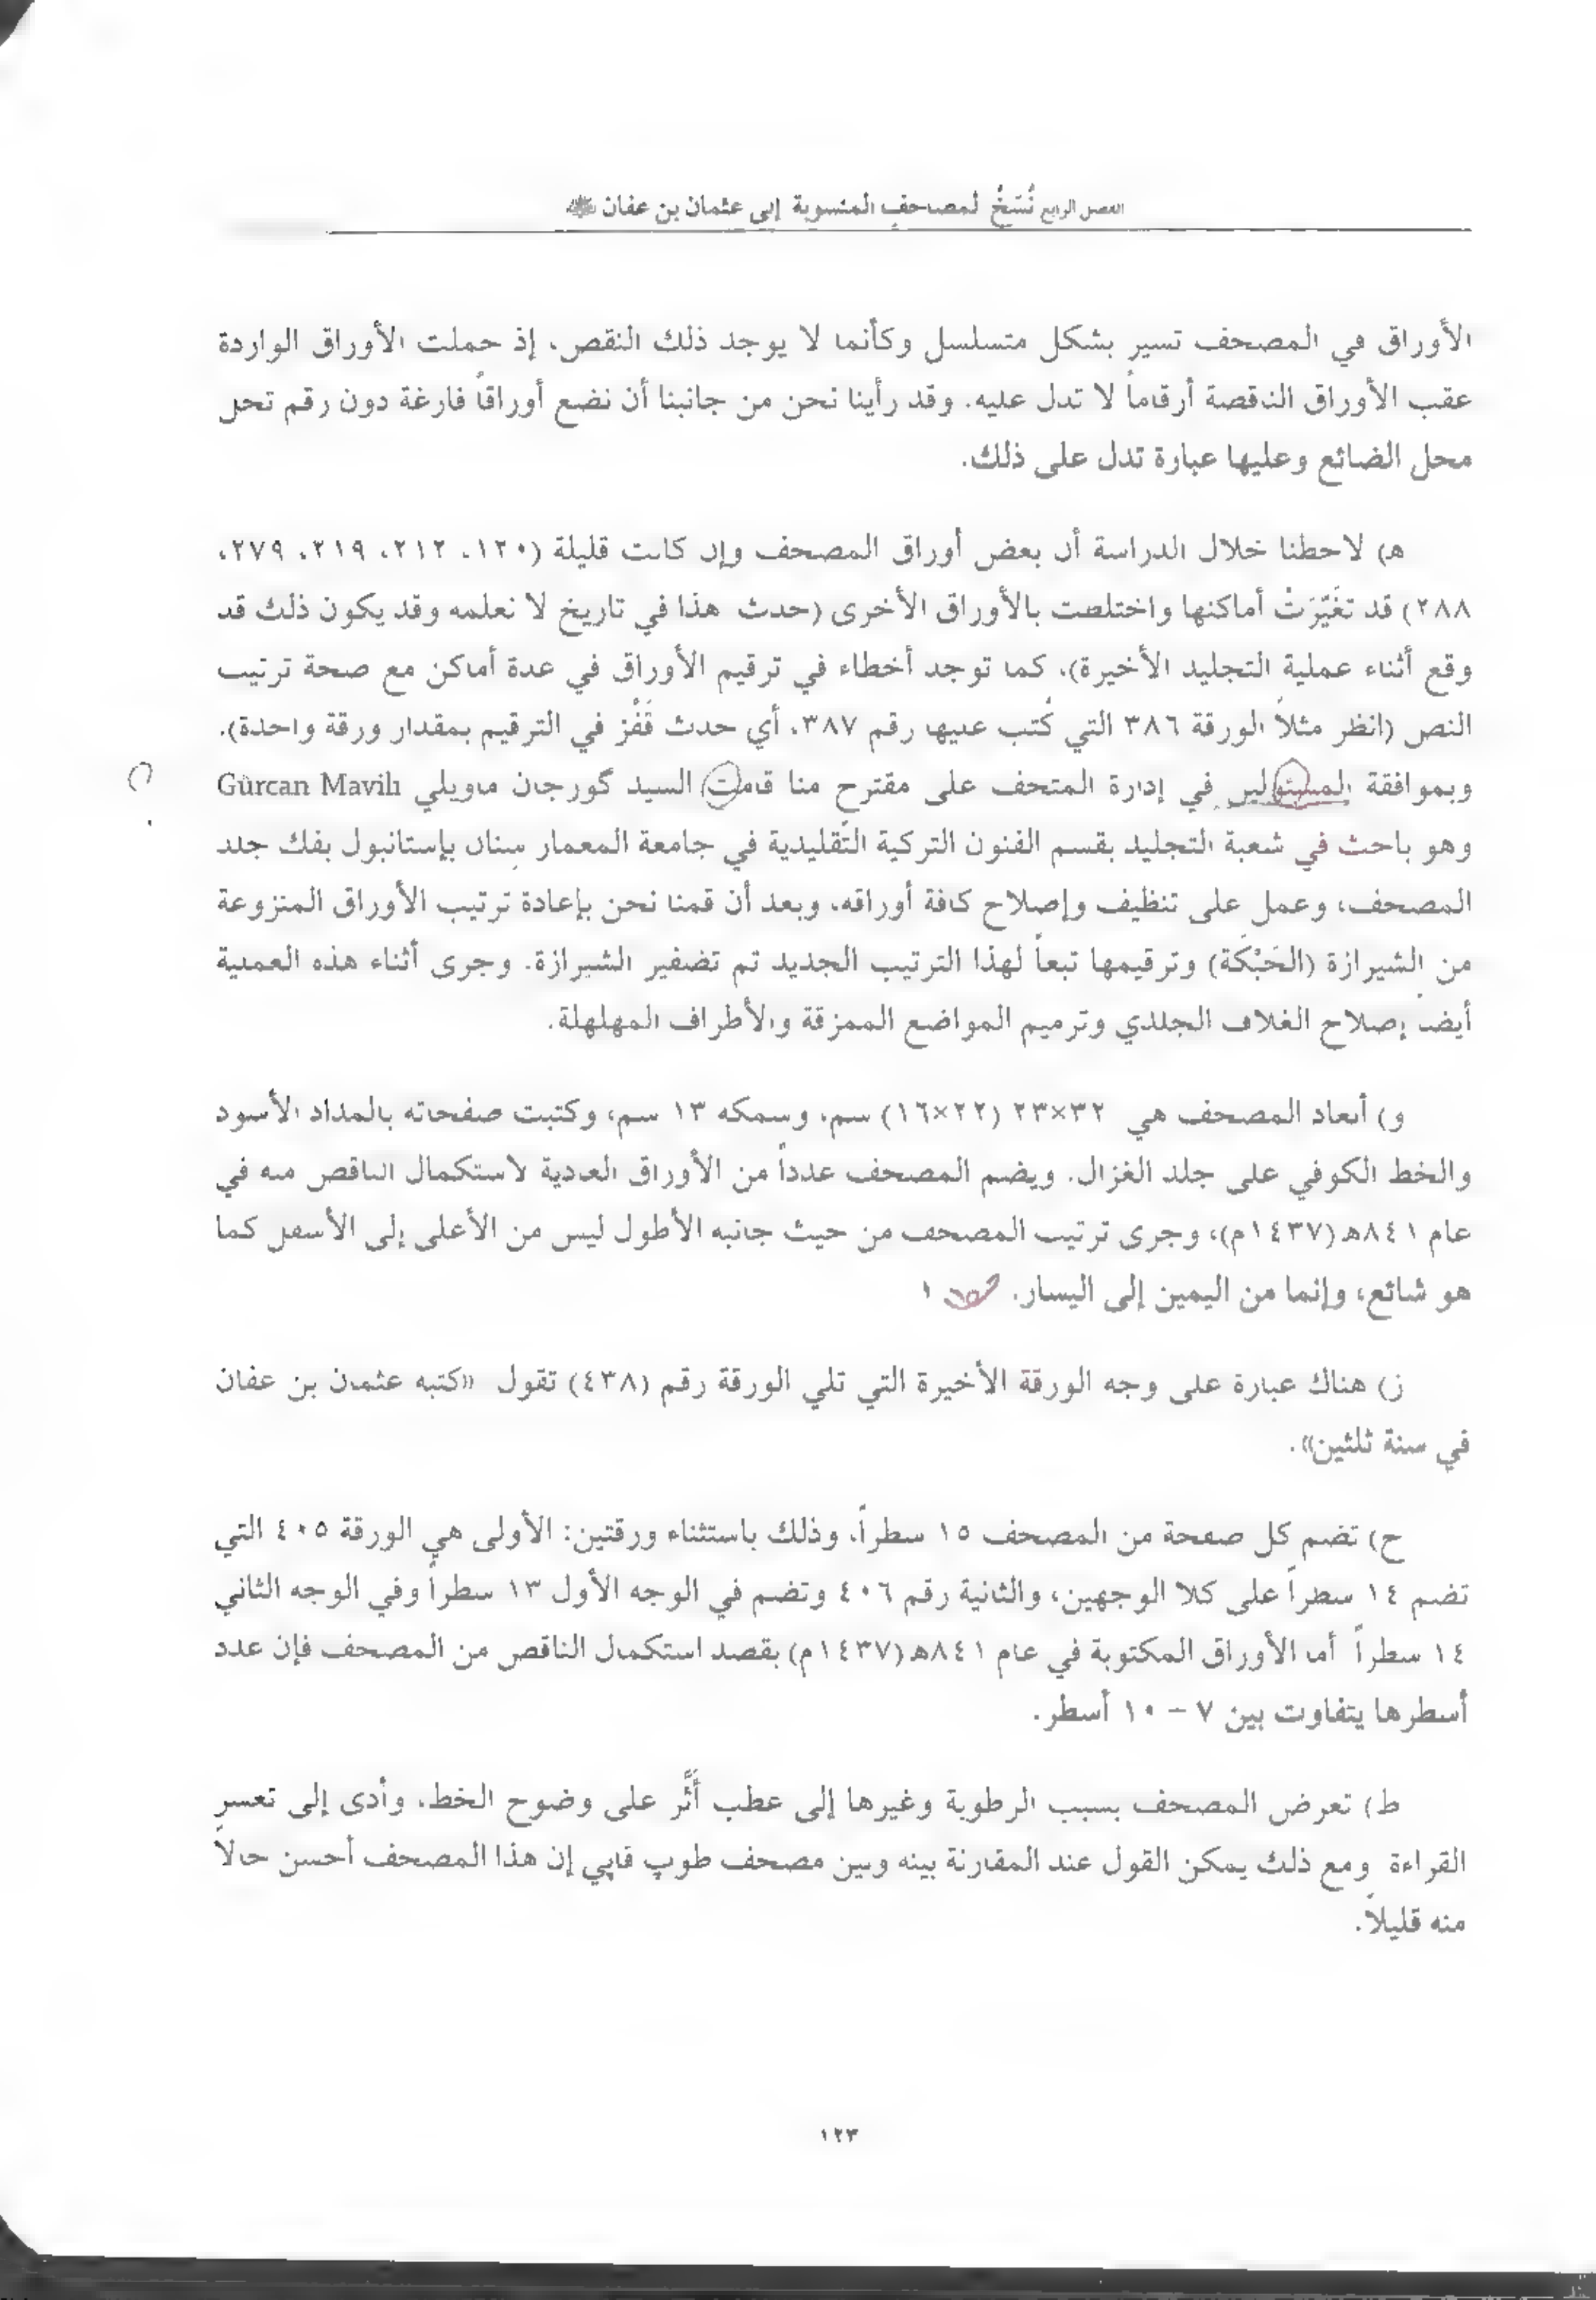 الفصل الرابع نُسَخُ المصاحفِ المنسوبة إلى عثمان بن عفان ﷺ
الأوراق في المصحف تسير بشكل متسلسل وكأنما لا يوجد ذلك النقص، إذ حملت الأوراق الواردة
عقب الأوراق الناقصة أرقاماً لا تدل عليه. وقد رأينا نحن من جانبنا أن نضع أوراقاً فارغة دون رقم تحل
محل الضائع وعليها عبارة تدل على ذلك.
هـ) لاحظنا خلال الدراسة أن بعض أوراق المصحف وإن كانت قليلة (١٢٠، ٢١٢، ٢١٩، ٢٧٩،
٢٨٨) قد تغَيّرَتْ أماكنها واختلطت بالأوراق الأخرى (حدث هذا في تاريخ لا نعلمه وقد يكون ذلك قد
وقع أثناء عملية التجليد الأخيرة)، كما توجد أخطاء في ترقيم الأوراق في عدة أماكن مع صحة ترتيب
النص (انظر مثلاً الورقة ٣٨٦ التي كُتب عليها رقم ٣٨٧، أي حدث قَفْز في الترقيم بمقدار ورقة واحدة).
وبموافقة المسئولين في إدارة المتحف على مقترح منا قامت السيد گورجان ماويلي Gürcan Mavilı
وهو باحث في شعبة التجليد بقسم الفنون التركية التقليدية في جامعة المعمار سِنان بإستانبول بفك جلد
المصحف، وعمل على تنظيف وإصلاح كافة أوراقه، وبعد أن قمنا نحن بإعادة ترتيب الأوراق المنزوعة
من الشيرازة (الحَبْكَة) وترقيمها تبعاً لهذا الترتيب الجديد تم تضفير الشيرازة. وجرى أثناء هذه العملية
أيضاً إصلاح الغلاف الجلدي وترميم المواضع الممزقة والأطراف المهلهلة.
و) أبعاد المصحف هي ٣٢×٢٣ (٢٢×١٦) سم، وسمكه ١٣ سم، وكتبت صفحاته بالمداد الأسود
والخط الكوفي على جلد الغزال. ويضم المصحف عدداً من الأوراق العادية لاستكمال الناقص منه في
عام ٨٤١هـ (١٤٣٧م)، وجرى ترتيب المصحف من حيث جانبه الأطول ليس من الأعلى إلى الأسفل كما
هو شائع، وإنما من اليمين إلى اليسار.
ز) هناك عبارة على وجه الورقة الأخيرة التي تلي الورقة رقم (٤٣٨) تقول «كتبه عثمان بن عفان
في سنة ثلثين».
ح) تضم كل صفحة من المصحف ١٥ سطراً، وذلك باستثناء ورقتين: الأولى هي الورقة ٤٠٥ التي
تضم ١٤ سطراً على كلا الوجهين، والثانية رقم ٤٠٦ وتضم في الوجه الأول ١٣ سطراً وفي الوجه الثاني
١٤ سطراً أما الأوراق المكتوبة في عام ٨٤١هـ (١٤٣٧م) بقصد استكمال الناقص من المصحف فإن عدد
أسطرها يتفاوت بين ٧ – ١٠ أسطر.
ط) تعرض المصحف بسبب الرطوبة وغيرها إلى عطب أَثَّر على وضوح الخط، وأدى إلى تعسر
القراءة ومع ذلك يمكن القول عند المقارنة بينه وبين مصحف طوپ قاپي إن هذا المصحف أحسن حالاً
منه قليلاً.
١٢٣